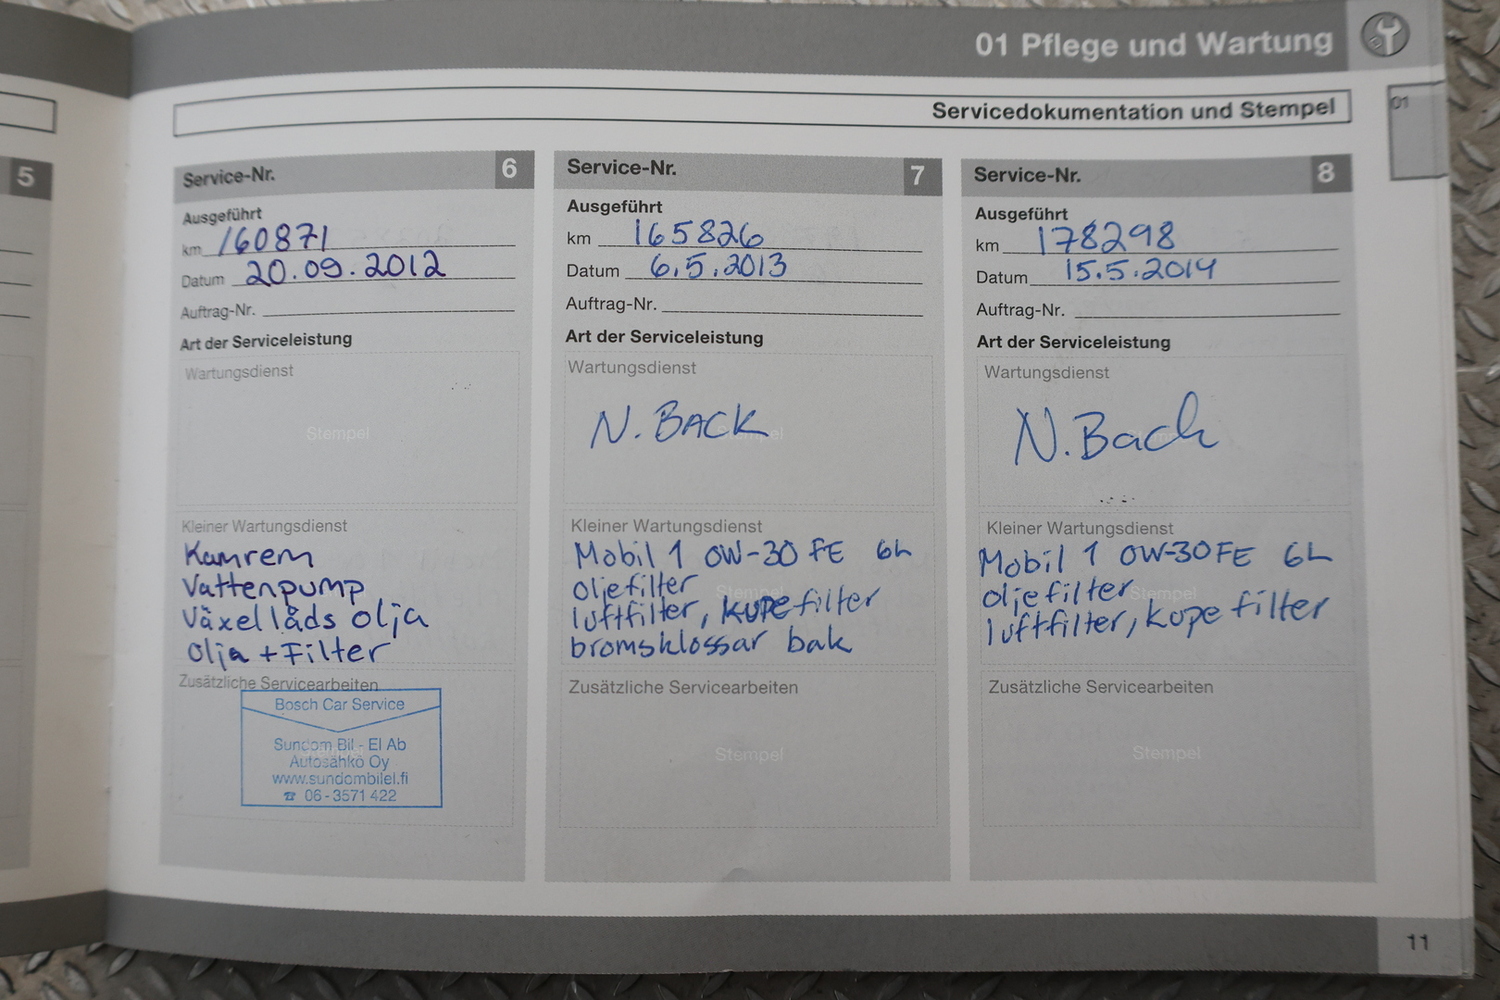 01 Pflege und Wartung
01
Servicedokumentation und Stempel
5
Service-Nr. 6
Ausgeführt
km 160871
Datum 20.09.2012
Auftrag-Nr.
Art der Serviceleistung
Wartungsdienst
Stempel
Kleiner Wartungsdienst
Kamrem
Vattenpump
Växellåds olja
Olja + Filter
Zusätzliche Servicearbeiten
Bosch Car Service
Sundom Bil - El Ab
Autosähkö Oy
www.sundombilel.fi
☎ 06-3571 422
Service-Nr. 7
Ausgeführt
km 165826
Datum 6.5.2013
Auftrag-Nr.
Art der Serviceleistung
Wartungsdienst
N. BACK
Stempel
Kleiner Wartungsdienst
Mobil 1 0W-30 FE 6L
oljefilter
Stempel
luftfilter, kupefilter
bromsklossar bak
Zusätzliche Servicearbeiten
Stempel
Service-Nr. 8
Ausgeführt
km 178298
Datum 15.5.2014
Auftrag-Nr.
Art der Serviceleistung
Wartungsdienst
N. Back
Kleiner Wartungsdienst
Mobil 1 0W-30 FE 6L
oljefilter
Stempel
luftfilter, kupefilter
Zusätzliche Servicearbeiten
Stempel
11